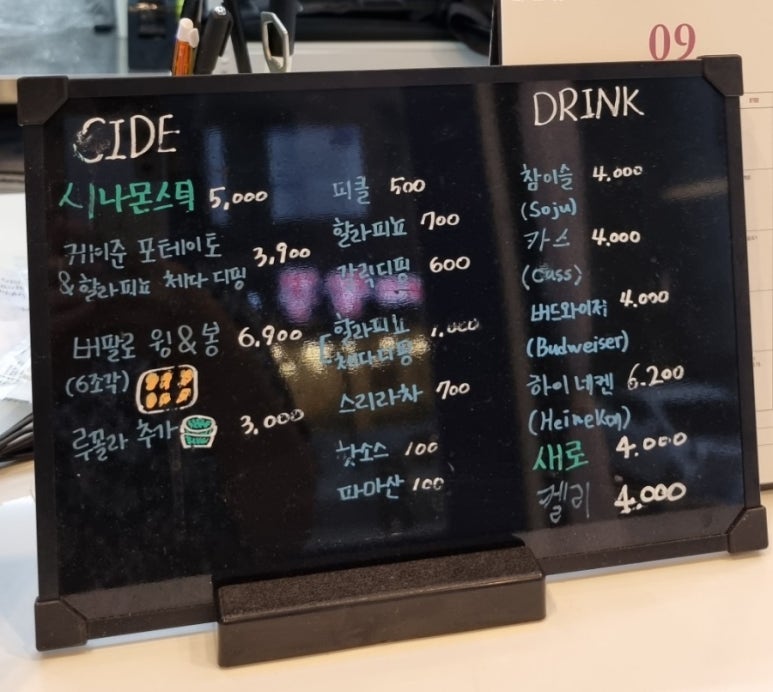 09
CIDE
시나몬스틱 5,000
케이준 포테이토
&할라피뇨 체다 디핑 3,900
버팔로 윙&봉 6,900
(6조각)
루꼴라 추가 3,000
피클 500
할라피뇨 700
갈릭디핑 600
할라피뇨
체다디핑 1,000
스리라차 700
핫소스 100
파마산 100
DRINK
참이슬 4.000
(Soju)
카스 4.000
(Cass)
버드와이저 4.000
(Budweiser)
하이네켄 6.200
(Heineken)
새로 4.000
켈리 4.000